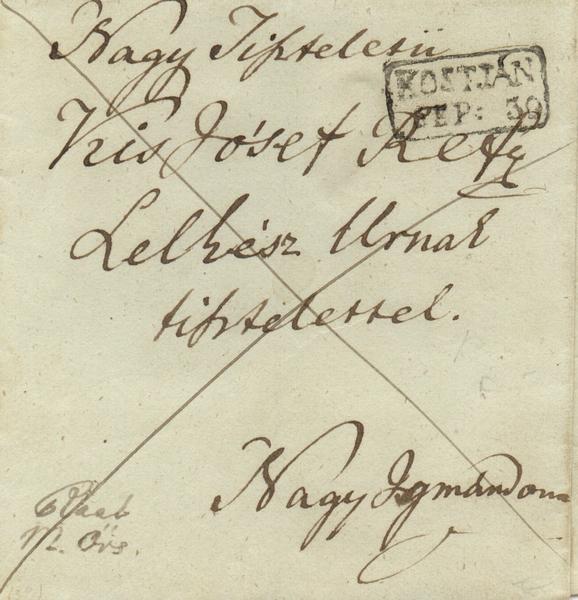 Nagy Tiszteletü
KOSTJÁN
SEP: 30
Kis Jósef Ref:
Lelkész Urnak
tisztelettel.
Nagy Igmándon